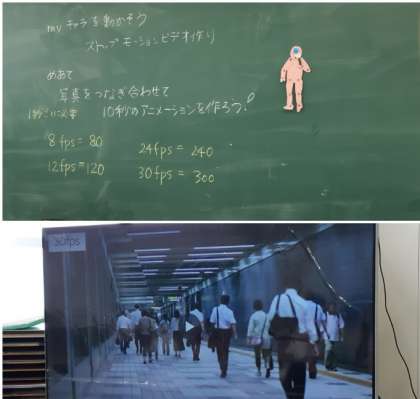 my キャラを動かそう
ストップモーションビデオ作り
めあて
写真をつなぎ合わせて
10秒のアニメーションを作ろう！
8fps=80
24fps=240
12fps=120
30fps=300
30fps